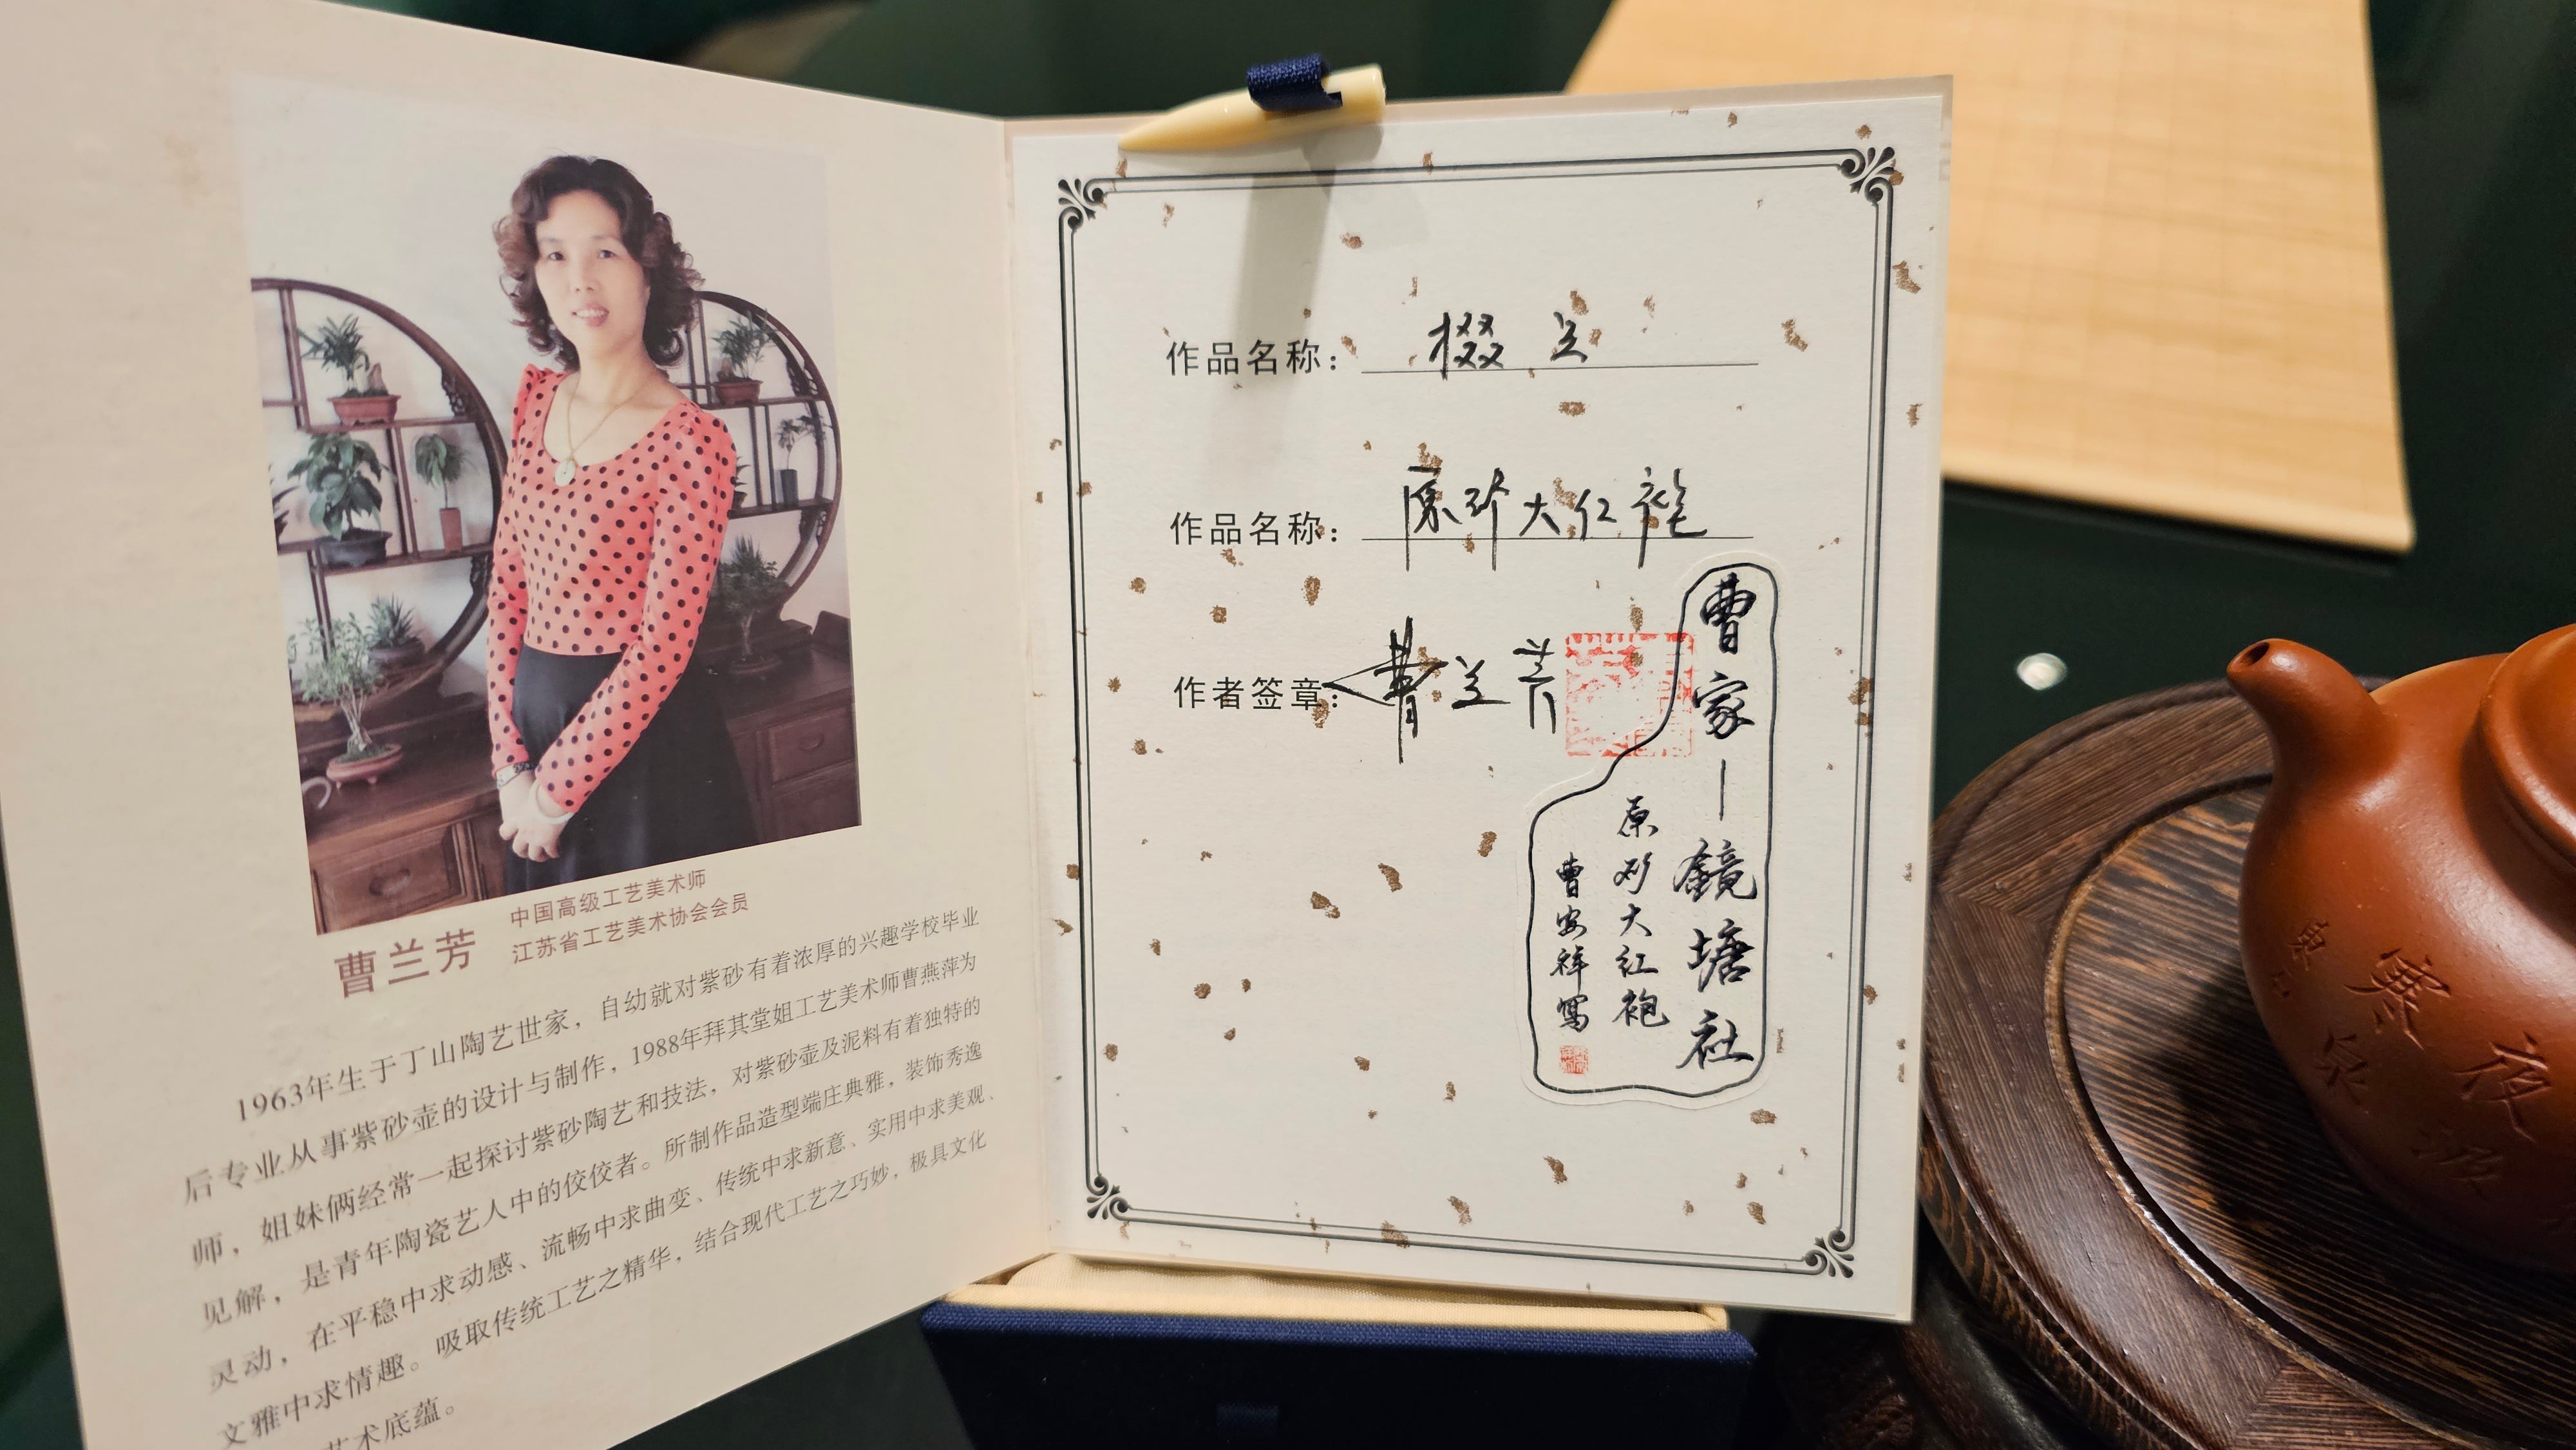 中国高级工艺美术师
江苏省工艺美术协会会员
曹兰芳
1963年生于丁山陶艺世家，自幼就对紫砂有着浓厚的兴趣学校毕业
后专业从事紫砂壶的设计与制作，1988年拜其堂姐工艺美术师曹燕萍为
师，姐妹俩经常一起探讨紫砂陶艺和技法，对紫砂壶及泥料有着独特的
见解，是青年陶瓷艺人中的佼佼者。所制作品造型端庄典雅，装饰秀逸
灵动，在平稳中求动感、流畅中求曲变、传统中求新意、实用中求美观、
文雅中求情趣。吸取传统工艺之精华，结合现代工艺之巧妙，极具文化
艺术底蕴。
作品名称：掇只
作品名称：原砂大红袍
作者签章：曹兰芳
曹家—鏡塘社
原砂大红袍
曹安祥寫
寒
夜